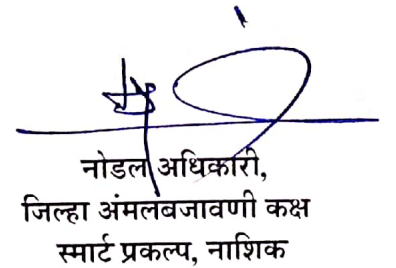 नोडल अधिकारी,
जिल्हा अंमलबजावणी कक्ष
स्मार्ट प्रकल्प, नाशिक